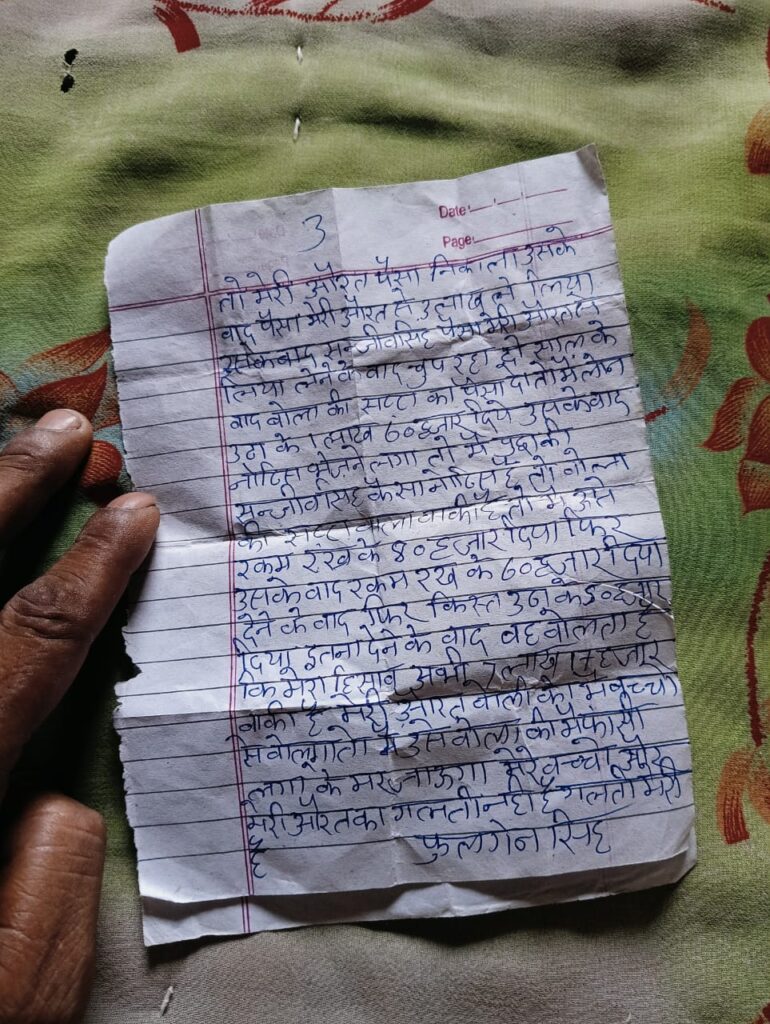 3
Date
Page
तो मेरी औरत पैसा निकाला उसके
वाद पैसा मेरी औरत से उ लाख ले लिया
उसकेवाद सन्जीवसिंह पैसा मेरी औरत से
लिया लेने के वाद चुप रहा दो साल के
वाद वोला की सट्टा का पैसा दो तो मैं लोन
उग के 1 लाख 60 हजार दिये उसकेवाद
नोटिस भेजने लगा तो मै पुछा की
सन्जीवसिंह कैसा नोटिस है तो वोला
की सट्टा वाला वाकी है तो मै उसे
रकम रख के 40 हजार दिया फिर
उसके वाद रकम रख के 60 हजार दिया
देने के वाद फिर किस्त उठू के 50 हजार
दियू इतना देने के वाद वह वोलता है
कि मेरा हिसाव अभी लाख हजार
वाकी है मेरी औरत वोली की मै वच्चो
से वोलूगा तो मै उसे वोला की मै फासी
लगा के मर जाऊगा मेरे वच्चो और
मेरी औरत का गलती नही है गलती मेरी
है फुलगेन सिंह